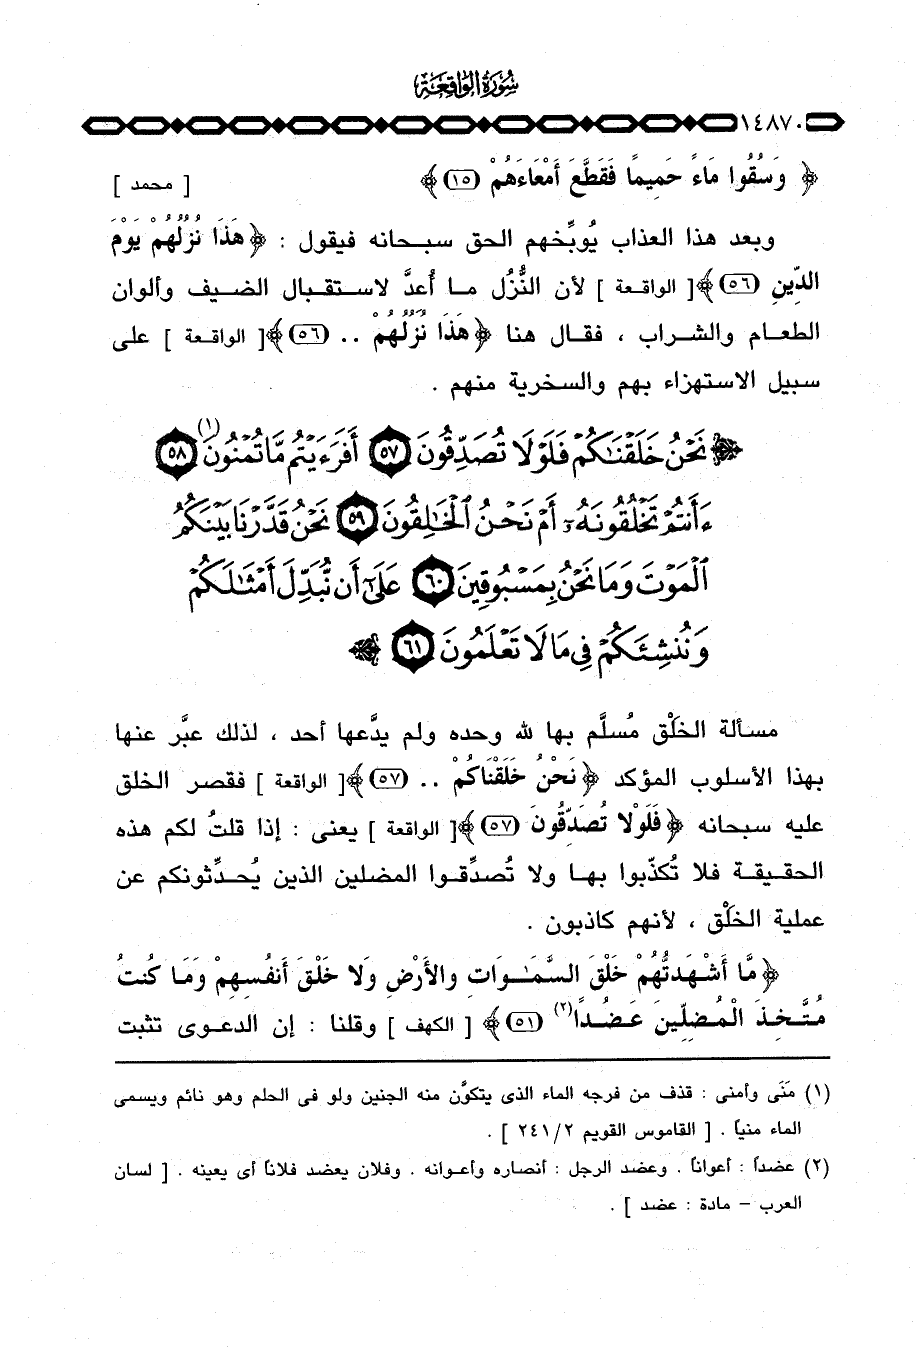 سُورَةُ الوَاقِعَةِ
١٤٨٧٠
﴿ وَسُقُوا مَاءً حَمِيمًا فَقَطَّعَ أَمْعَاءَهُمْ (١٥) ﴾ [ محمد ]
وبعد هذا العذاب يُوبِّخهم الحق سبحانه فيقول : ﴿ هَذَا نُزُلُهُمْ يَوْمَ
الدِّينِ (٥٦) ﴾ [ الواقعة ] لأن النُّزُل ما أُعدَّ لاستقبال الضيف وألوان
الطعام والشراب ، فقال هنا ﴿ هَذَا نُزُلُهُمْ .. (٥٦) ﴾ [ الواقعة ] على
سبيل الاستهزاء بهم والسخرية منهم .
﴿ نَحْنُ خَلَقْنَاكُمْ فَلَوْلَا تُصَدِّقُونَ ٥٧ أَفَرَءَيْتُم مَّا تُمْنُونَ (١) ٥٨
ءَأَنتُمْ تَخْلُقُونَهُۥٓ أَمْ نَحْنُ الْخَالِقُونَ ٥٩ نَحْنُ قَدَّرْنَا بَيْنَكُمُ
الْمَوْتَ وَمَا نَحْنُ بِمَسْبُوقِينَ ٦٠ عَلَىٰٓ أَن نُّبَدِّلَ أَمْثَالَكُمْ
وَنُنشِئَكُمْ فِي مَا لَا تَعْلَمُونَ ٦١ ﴾
مسألة الخَلْق مُسلَّم بها لله وحده ولم يدَّعها أحد ، لذلك عبَّر عنها
بهذا الأسلوب المؤكد ﴿ نَحْنُ خَلَقْنَاكُمْ .. (٥٧) ﴾ [ الواقعة ] فقصر الخلق
عليه سبحانه ﴿ فَلَوْلا تُصَدِّقُونَ (٥٧) ﴾ [ الواقعة ] يعنى : إذا قلتُ لكم هذه
الحقيقة فلا تُكذِّبوا بها ولا تُصدِّقوا المضلين الذين يُحدِّثونكم عن
عملية الخَلْق ، لأنهم كاذبون .
﴿ مَّا أَشْهَدتُّهُمْ خَلْقَ السَّمَـٰوَاتِ والأَرْضِ وَلا خَلْقَ أَنفُسِهِمْ وَمَا كُنتُ
مُتَّخِذَ الْمُضِلِّينَ عَضُدًا (٢) (٥١) ﴾ [ الكهف ] وقلنا : إن الدعوى تثبت
(١) مَنَى وأمنى : قذف من فرجه الماء الذى يتكوَّن منه الجنين ولو فى الحلم وهو نائم ويسمى
الماء منياً . [ القاموس القويم ٢٤١/٢ ] .
(٢) عضداً : أعواناً . وعضد الرجل : أنصاره وأعوانه . وفلان يعضد فلاناً أى يعينه . [ لسان
العرب – مادة : عضد ] .